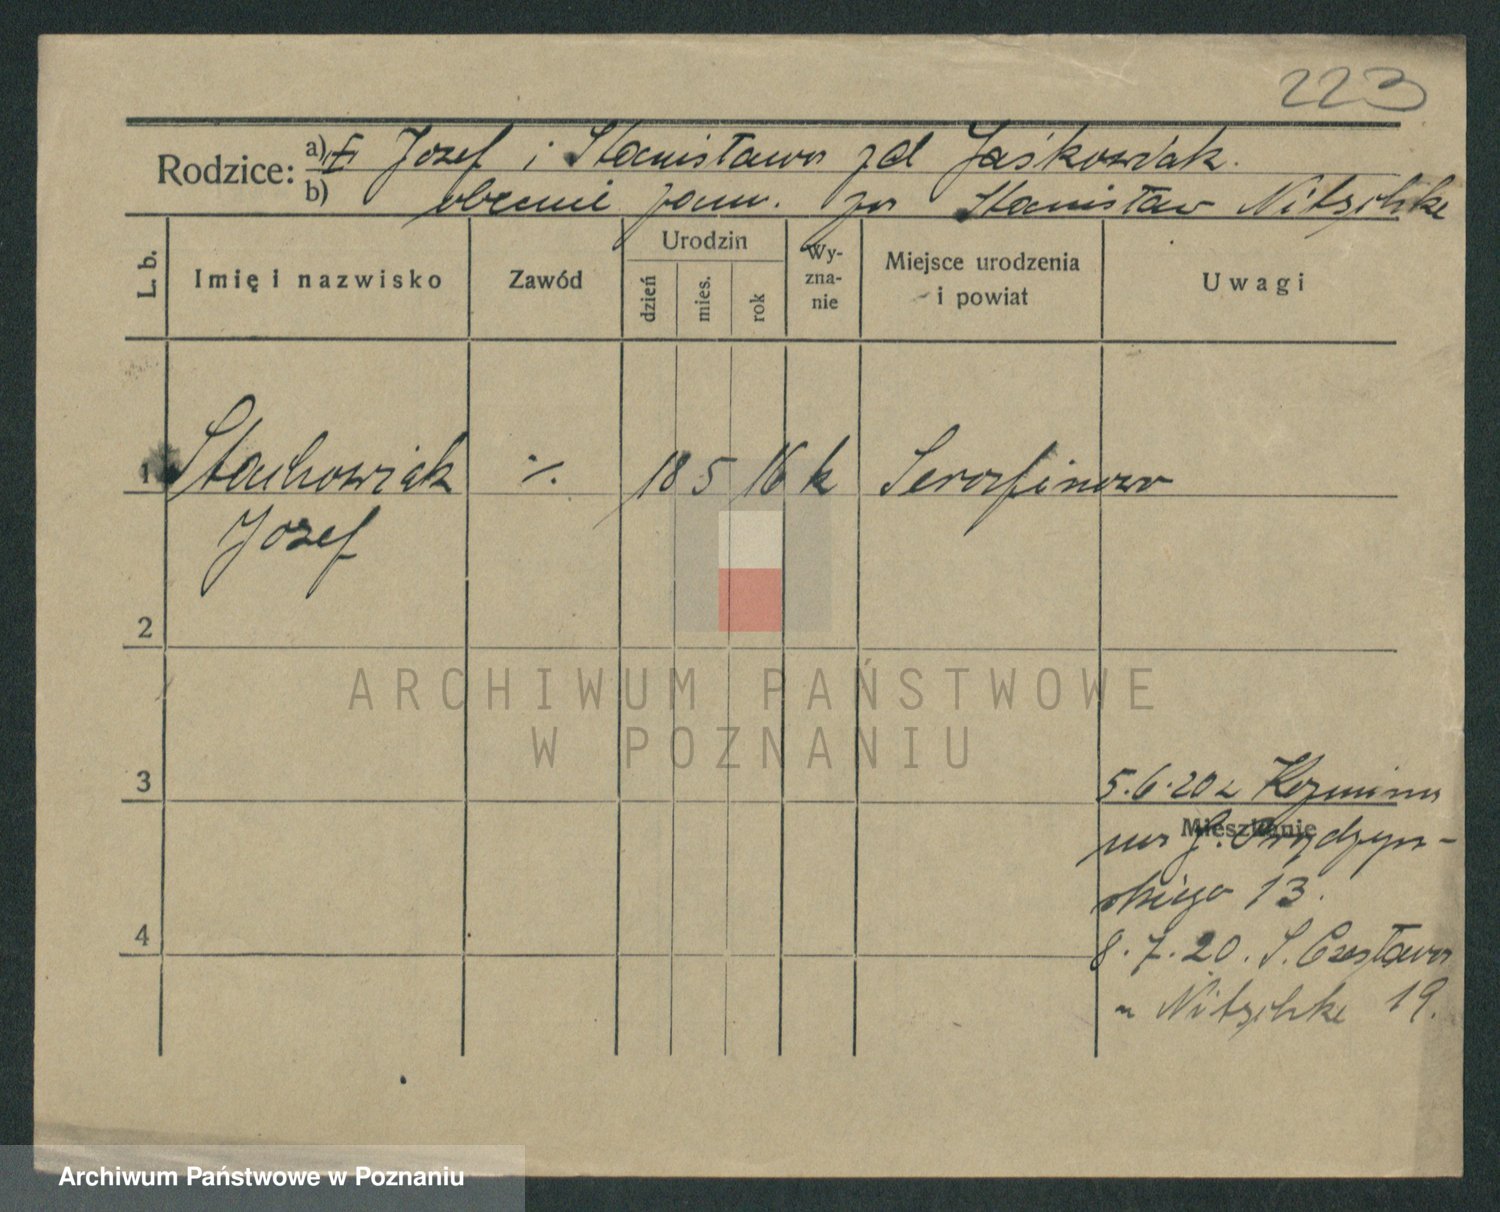 223
Rodzice: a) Józef i Stanisława zd Jaśkowiak.
b) obecnie zam. za Stanisław Nitzschke
L. b.
Imię i nazwisko
Zawód
Urodzin
dzień
mies.
rok
Wy-
zna-
nie
Miejsce urodzenia
i powiat
Uwagi
1 Stachowiak ./. 18 5 16 k Serafinowo
Józef
2
3
5.6.20 z Kozmina
Mieszkanie
na
skiego 13.
4
8.7.20. S. Czesława
Nitzschke 19.
ARCHIWUM PAŃSTWOWE
W POZNANIU
Archiwum Państwowe w Poznaniu